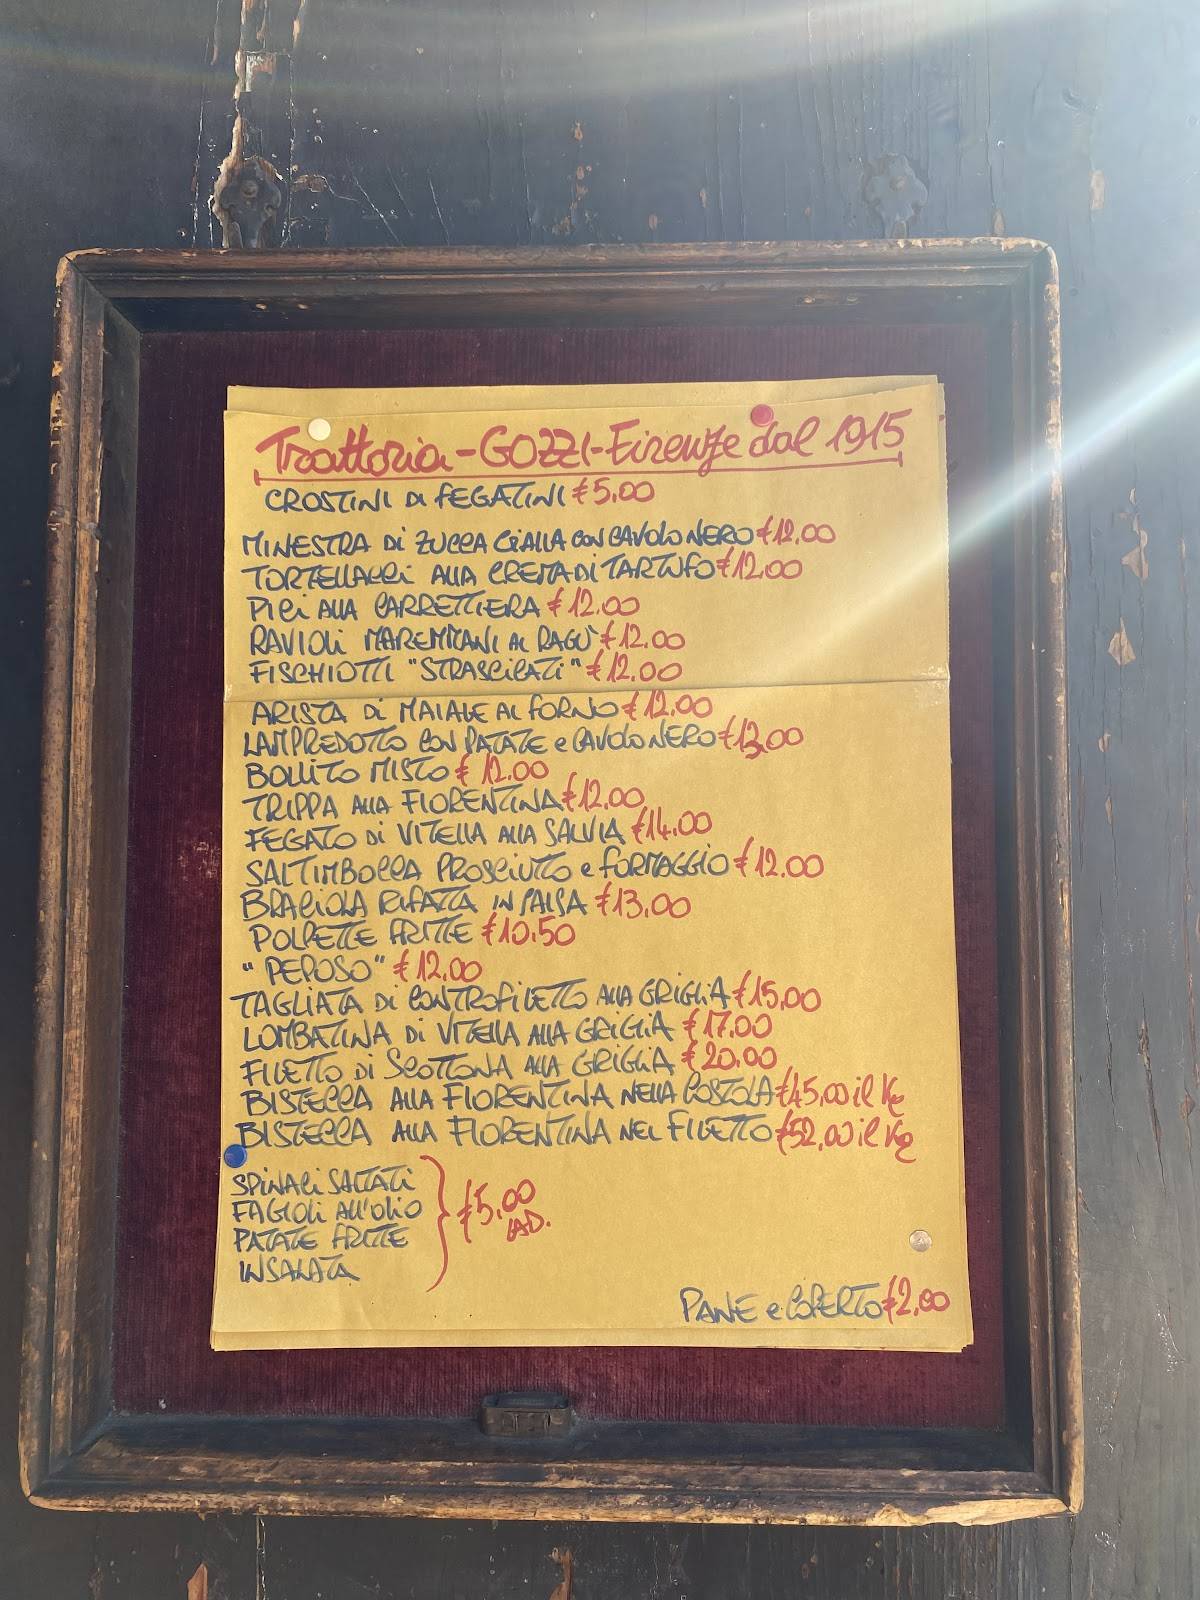 Trattoria-GOZZI-Firenze dal 1915
CROSTINI DI FEGATINI €5,00
MINESTRA DI ZUCCA GIALLA CON CAVOLO NERO €12.00
TORTELLACCI ALLA CREMA DI TARTUFO €12.00
PICI ALLA CARRETTIERA €12.00
RAVIOLI MAREMMANI AL RAGU' €12.00
FISCHIOTTI "STRASCICATI" €12.00
ARISTA DI MAIALE AL FORNO €12.00
LAMPREDOTTO CON PATATE e CAVOLO NERO €13,00
BOLLITO MISTO € 12.00
TRIPPA ALLA FIORENTINA €12.00
FEGATO DI VITELLA ALLA SALVIA €14.00
SALTIMBOCCA PROSCIUTTO e FORMAGGIO €12.00
BRACIOLA RIFATTA IN SALSA €13,00
POLPETTE FRITTE €10.50
"PEPOSO" €12.00
TAGLIATA DI CONTROFILETTO ALLA GRIGLIA €15,00
LOMBATINA DI VITELLA ALLA GRIGLIA €17.00
FILETTO DI SCOTTONA ALLA GRIGLIA €20.00
BISTECCA ALLA FIORENTINA NELLA COSTOLA €45,00 il Kg
BISTECCA ALLA FIORENTINA NEL FILETTO €52,00 il Kg
SPINACI SALTATI
FAGIOLI ALL'OLIO
PATATE FRITTE
INSALATA
€5,00
CAD.
PANE e COPERTO €2,00